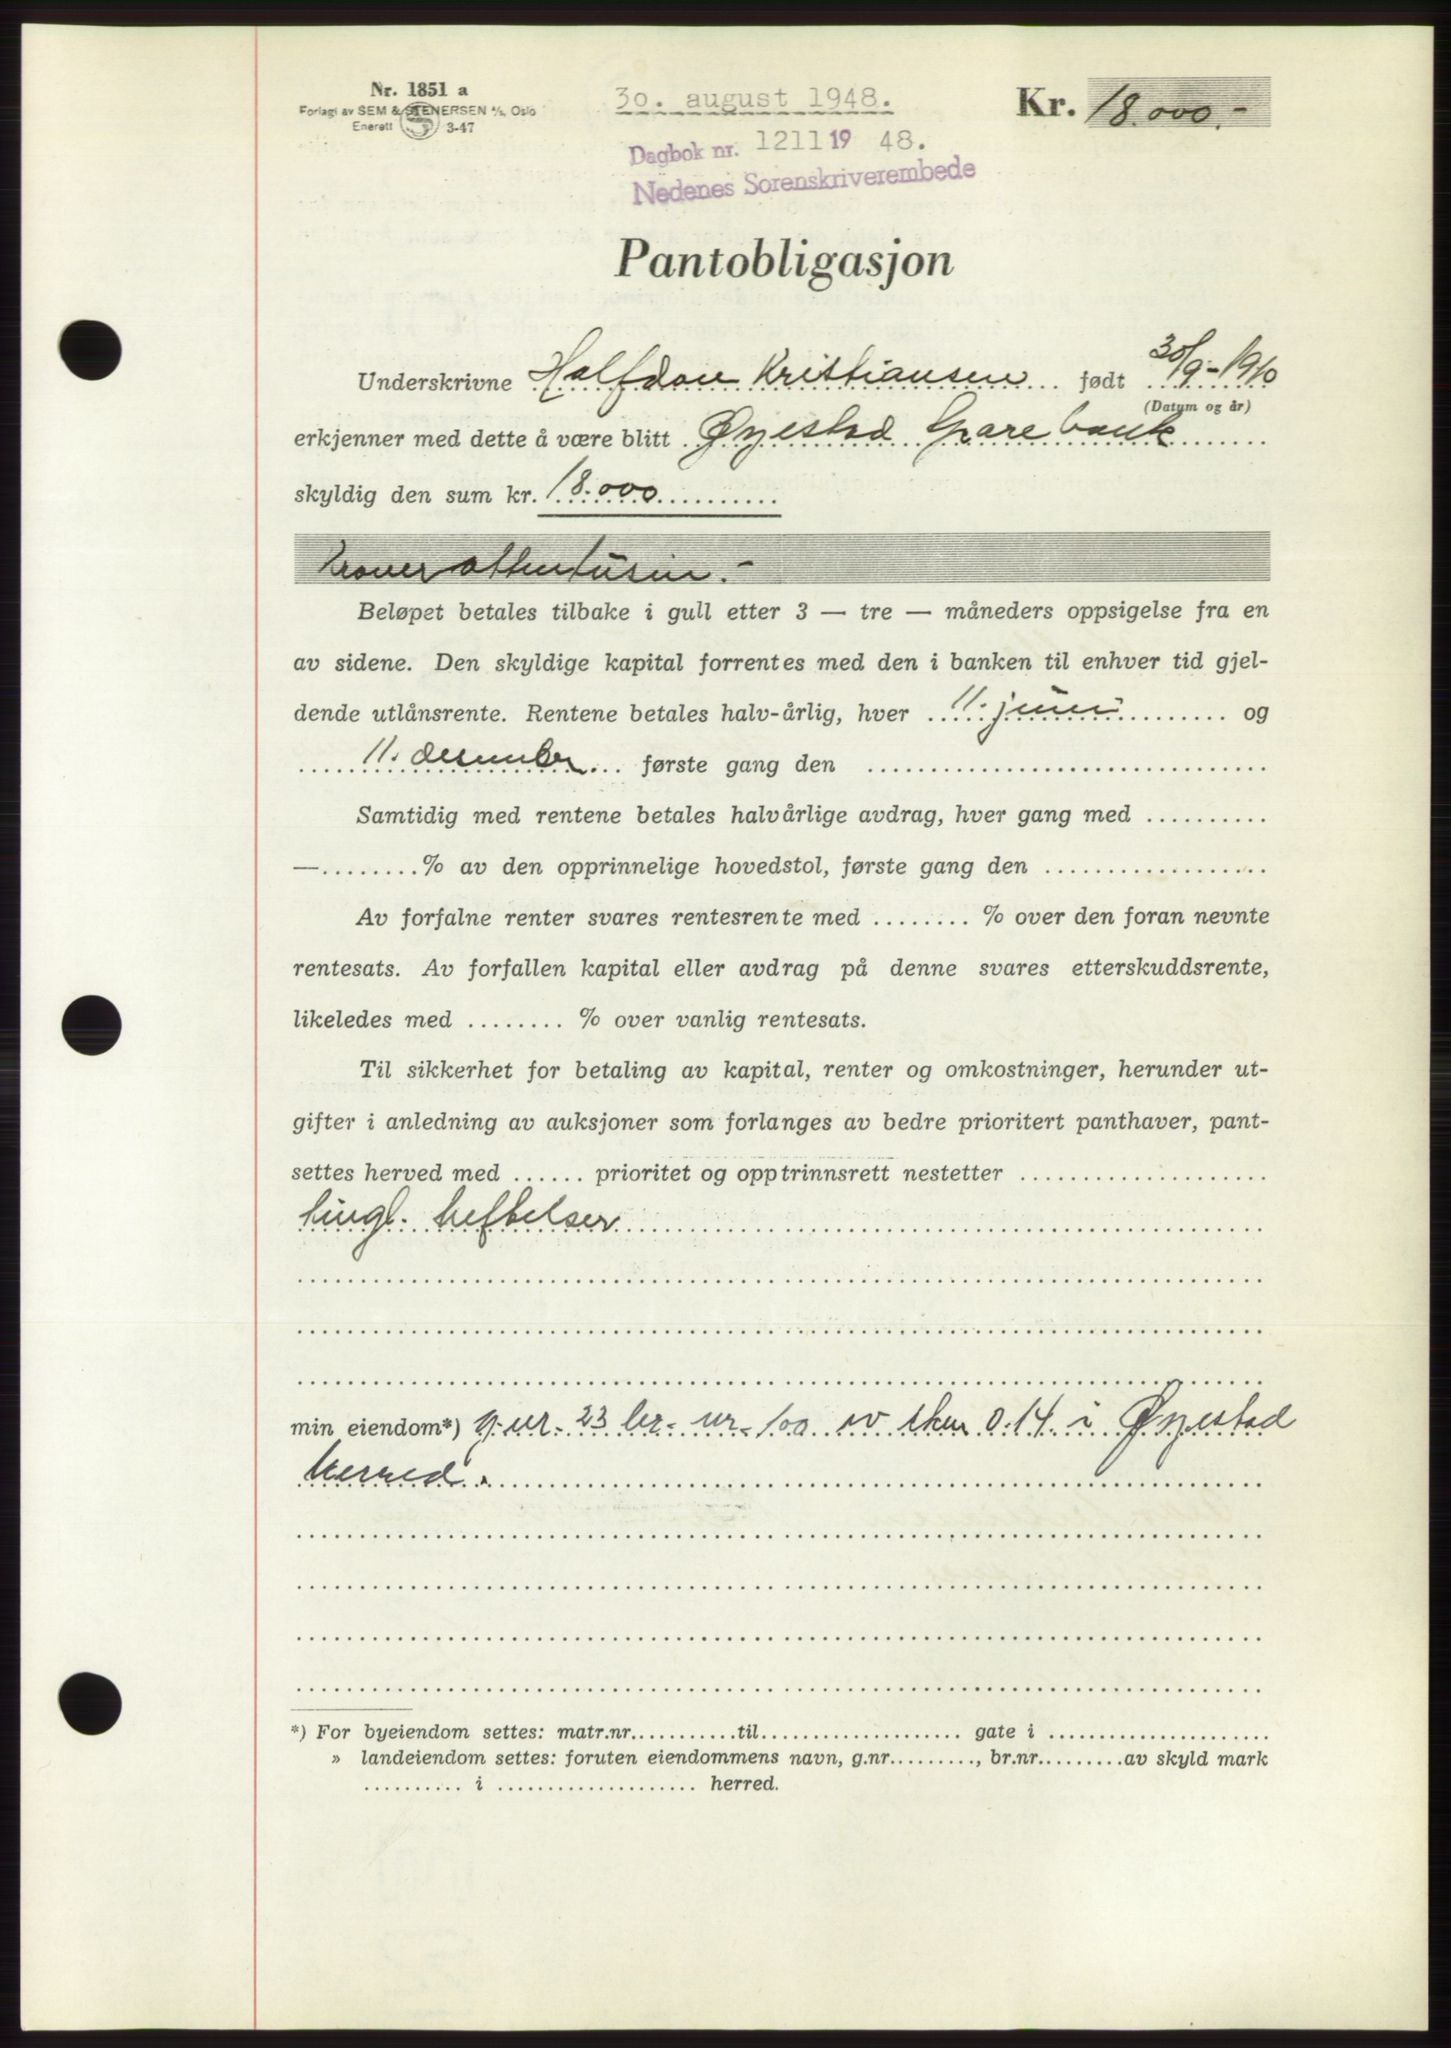 Nr. 1851 a
Forlagt av SEM & STENERSEN A/S, Oslo
Enerett 3-47
30. august 1948.
Kr. 18.000.-
Dagbok nr. 1211 19 48.
Nedenes Sorenskriverembede
Pantobligasjon
Underskrivne Halfdan Kristiansen født 30/9-1910
(Datum og år)
erkjenner med dette å være blitt Øyestad Sparebank
skyldig den sum kr. 18.000
Kroner attentusin.-
Beløpet betales tilbake i gull etter 3 — tre — måneders oppsigelse fra en
av sidene. Den skyldige kapital forrentes med den i banken til enhver tid gjel-
dende utlånsrente. Rentene betales halv-årlig, hver 11. juni og
11. desember første gang den
Samtidig med rentene betales halvårlige avdrag, hver gang med
— % av den opprinnelige hovedstol, første gang den
Av forfalne renter svares rentesrente med % over den foran nevnte
rentesats. Av forfallen kapital eller avdrag på denne svares etterskuddsrente,
likeledes med % over vanlig rentesats.
Til sikkerhet for betaling av kapital, renter og omkostninger, herunder ut-
gifter i anledning av auksjoner som forlanges av bedre prioritert panthaver, pant-
settes herved med prioritet og opptrinnsrett nestetter
tingl. heftelser
min eiendom*) g.nr. 23 br. nr. 100 av skm 0.14 i Øyestad
herred.
*) For byeiendom settes: matr.nr. til gate i
» landeiendom settes: foruten eiendommens navn, g.nr. , br.nr. av skyld mark
i herred.